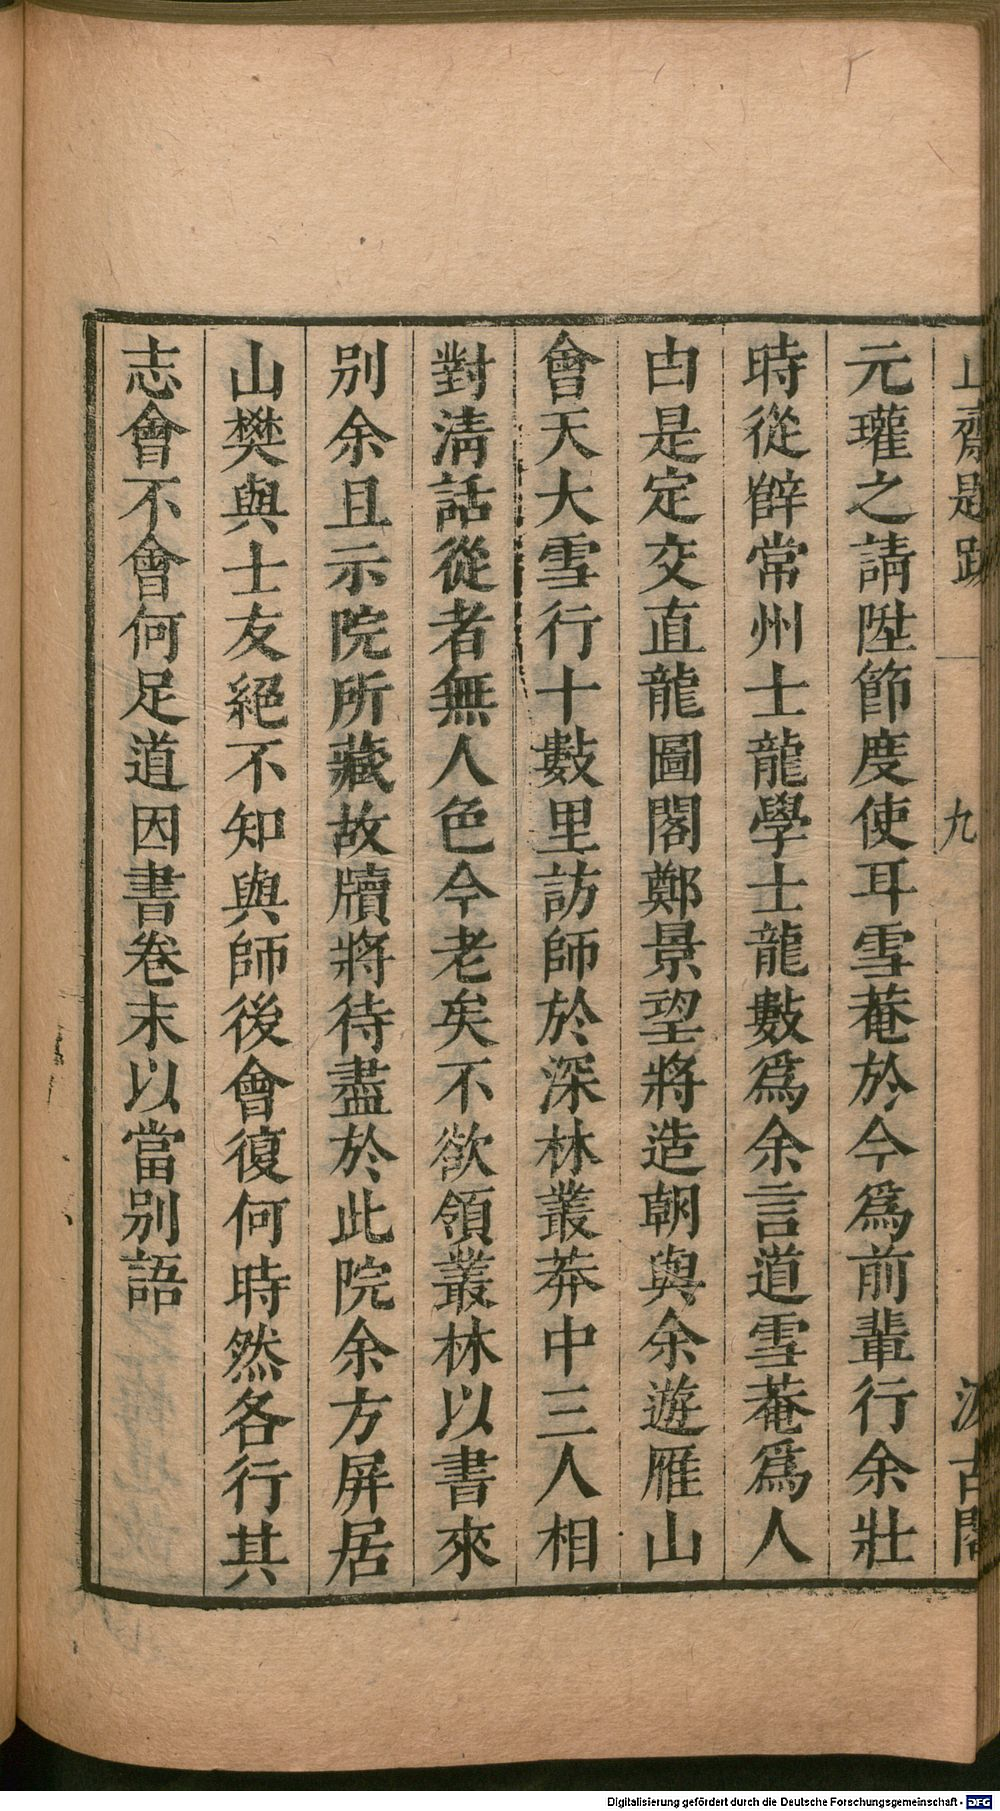 止齋題跋 九 汲古閣
元瓘之請陞節度使耳雪菴於今爲前輩行余壯
時從薛常州士龍學士龍數爲余言道雪菴爲人
由是定交直龍圖閣鄭景望將造朝與余遊雁山
會天大雪行十數里訪師於深林叢莽中三人相
對清話從者無人色今老矣不欲領叢林以書來
别余且示院所藏故牘將待盡於此院余方屏居
山樊與士友絕不知與師後會復何時然各行其
志會不會何足道因書卷末以當别語
Digitalisierung gefördert durch die Deutsche Forschungsgemeinschaft - DFG